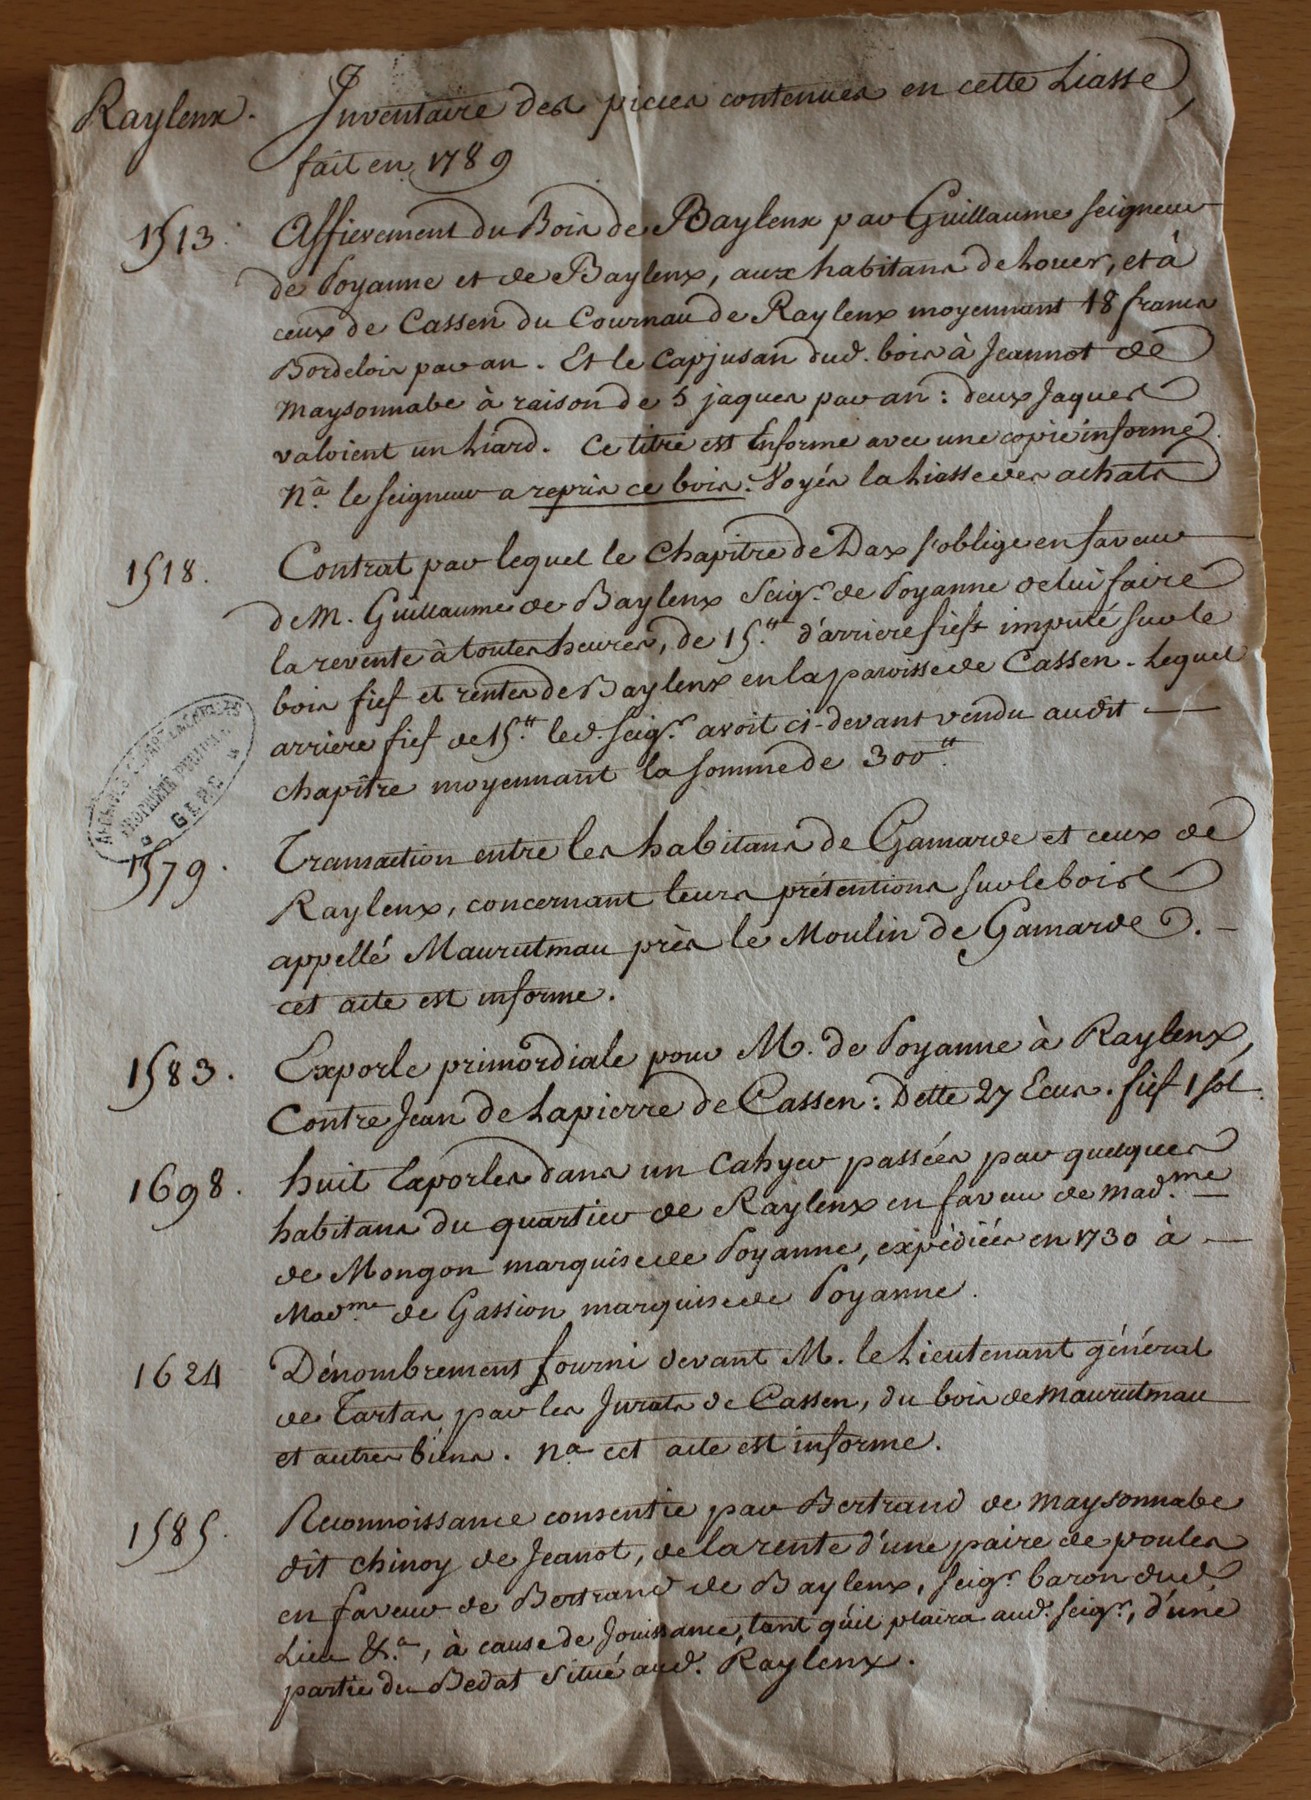 Raylenx. Inventaire des pieces contenues en cette Liasse,
fait en 1789
1513. Affievement du Bois de Baylenx par Guillaume seigneur
de Poyanne et de Baylenx, aux habitans de Louer, et à
ceux de Cassen du Cournau de Raylenx moyennant 18 francs
Bordelois par an. Et le Capjusan dud. bois à Jeannot de
Maysonnabe à raison de 5 jaques par an : deux Jaques
valoient un Liard. Ce titre est Informe avec une copie informe.
Na. le seigneur a repris ce bois. Voyés la Liasse des achats
1518. Contrat par lequel le Chapitre de Dax s'oblige en faveur
de M. Guillaume de Baylenx Seigr. de Poyanne de lui faire
la revente à toutes heures, de 15.tt d'arriere fief imputé sur le
bois fief et rentes de Baylenx en la paroisse de Cassen. Lequel
arriere fief de 15.tt led. seigr. avoit ci-devant vendu audit
chapitre moyennant la somme de 300.tt
PROPRIÉTÉ PUBLIQUE
GERS
1579. Transaction entre les habitans de Gamarde et ceux de
Raylenx, concernant leurs prétentions sur le bois
appellé Maurutmau près le Moulin de Gamarde.
cet acte est informe.
1583. Exporle primordiale pour M. de Poyanne à Raylenx,
Contre Jean de Lapierre de Cassen : Dette 27 Ecus. fief 1 sol.
1698. huit Exporles dans un Cahyer passées par quelques
habitans du quartier de Raylenx en faveur de Mad.me
de Mongon marquise de Poyanne, expédiées en 1730 à
Mad.me de Gassion marquise de Poyanne.
1624 Dénombrement fourni devant M. le Lieutenant général
de Tartas par les Jurats de Cassen, du bois de Maurutmau
et autres biens. Na. cet acte est informe.
1585. Reconnoissance consentie par Bertrand de Maysonnabe
dit Chinoy de Jeanot, de la rente d'une paire de poules
en faveur de Bertrand de Baylenx, seigr. baron dud.
Lieu &.a, à cause de Jouissance, tant qu'il plaira aud. seigr., d'une
partie du Bedat situé aud. Raylenx.